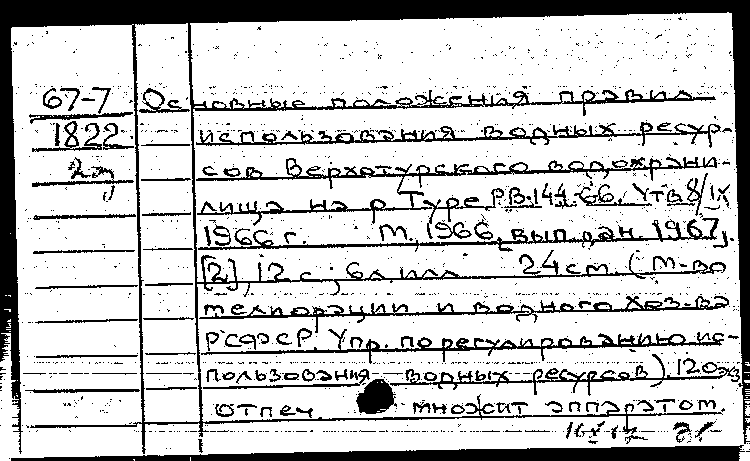 67-7 Основные положения правил
1822 использования водных ресур-
2 эз сов Верхотурского водохрани-
лища на р. Туре РВ-144-66. Утв 8/IX
1966 г. М., 1966, вып. дан. 1967.
[2], 12 с.; 6 л. илл 24 см. (М-во
мелиорации и водного хоз-ва
РСФСР. Упр. по регулированию ис-
пользования водных ресурсов) 120 экз
Отпеч. множит аппаратом.